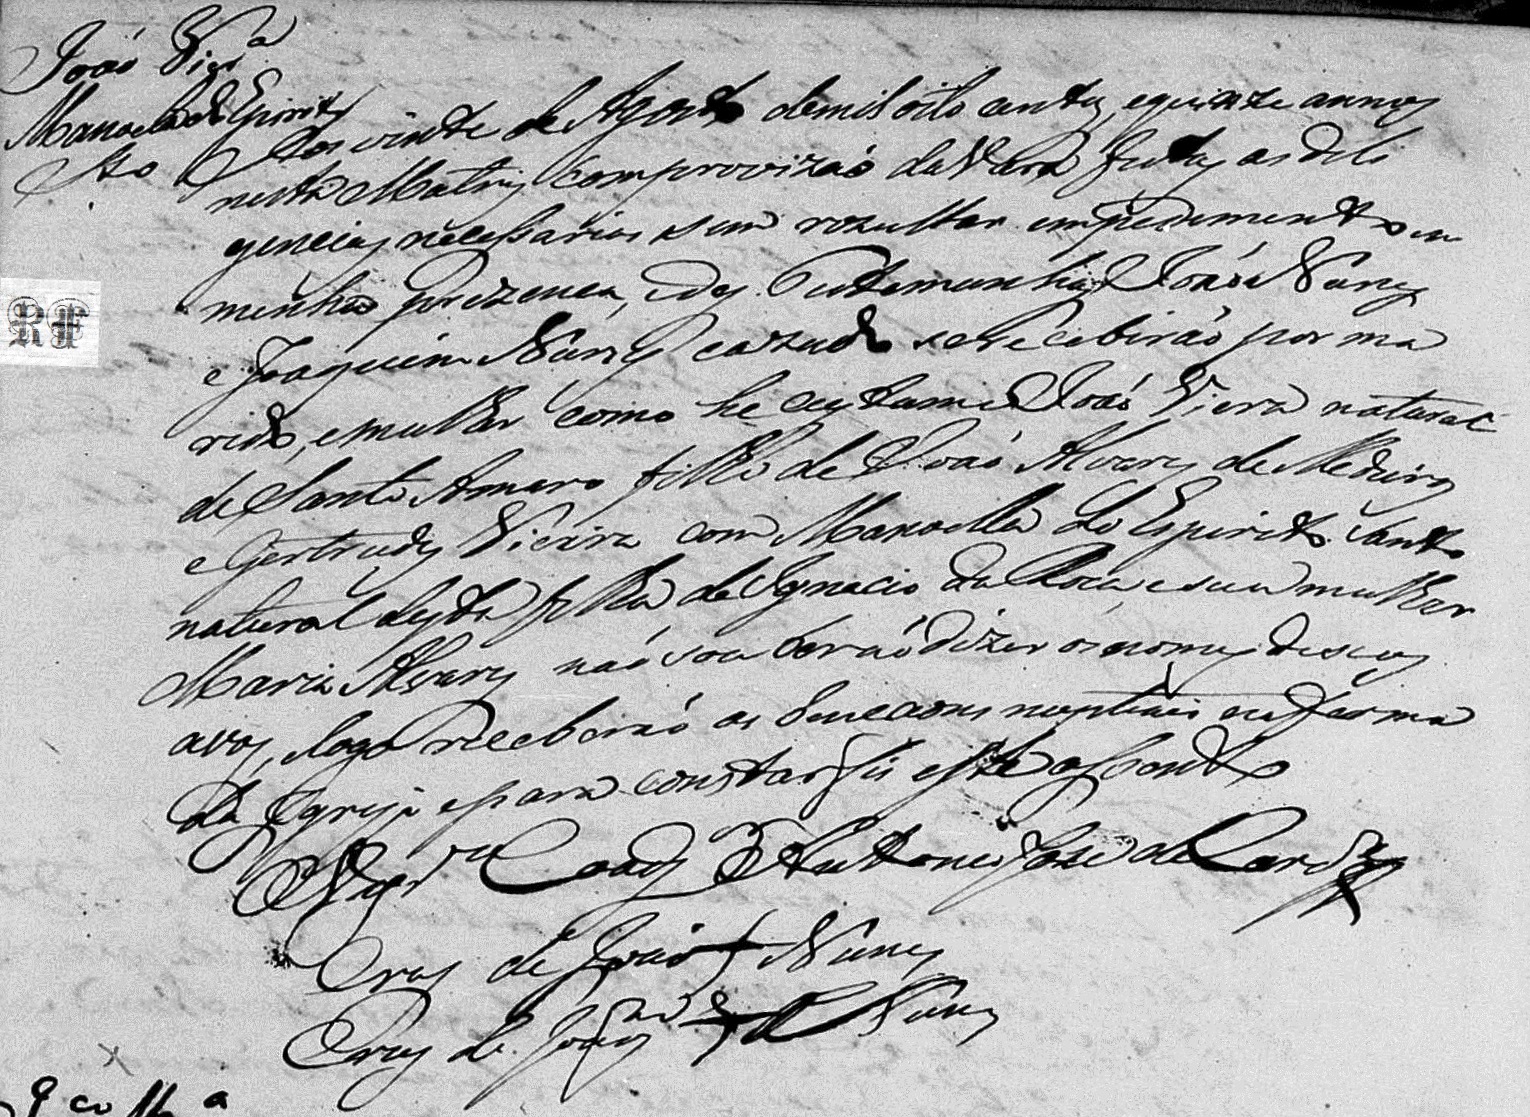 João Vier.a
Manoela do Espirito
Sto
Aos vinte de Agosto demil oito centos, equinze annos
nesta Matriz com provizaó da Vara feitas as dili
gencias necessarias sem rezultar impedimento em
minha prezenca, e das Testemunhas Joáo Nunes
e Joaquim Nunes cazados se Receberáo por ma
rido, emulher como he custume Joáo Viera natural
de Santo Amaro filho de Joáo Alvares de Medeiros
e Gertrudes Vieira com Manoella do Espirito Santo
natural desta filha de Ignacio da Roca e sua mulher
Maria Alvares náo souberaó dizer os nomes de seus
avos, logo receberaó as bencaons nupciais na forma
da Igreja epara constar fis este assento
Antonio Joze de
Cruz de Joáo + Nunes
Cruz de Joaqm + Nunes
RF